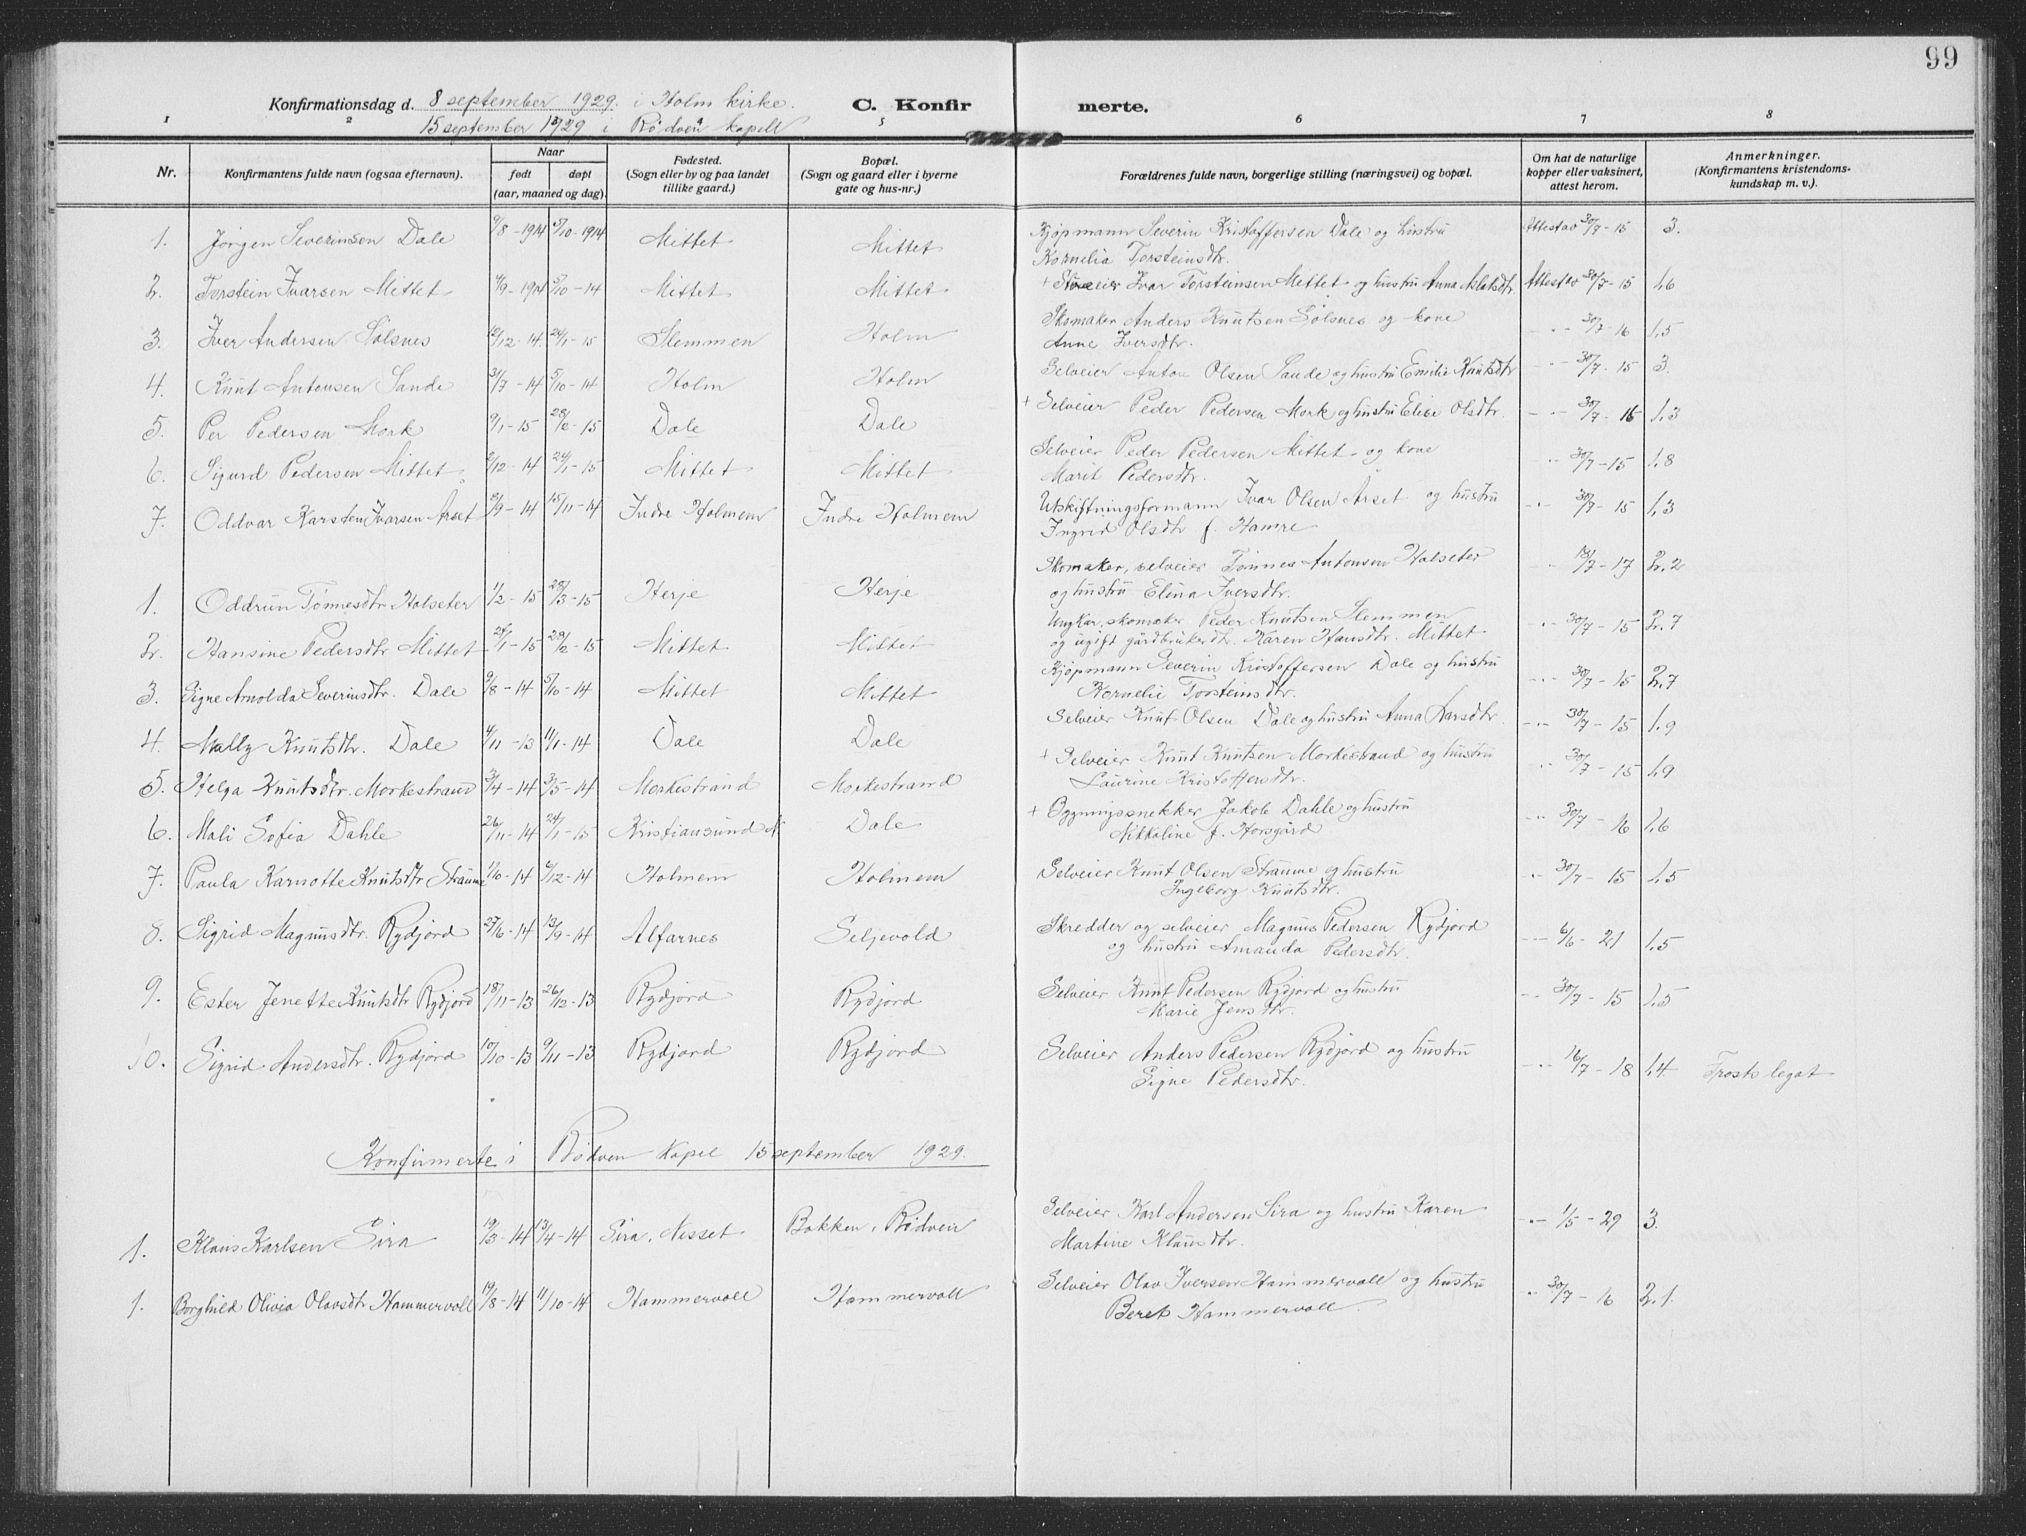 99
Konfirmationsdag d. 8 september 1929. i Holm kirke. C. Konfirmerte.
15 september 1929 i Rødven kapell
1 2 3 4 5 6 7 8
Nr. Konfirmantens fulde navn (ogsaa efternavn). Naar født døpt (aar, maaned og dag). Fødested. (Sogn eller by og paa landet tillike gaard.) Bopæl. (Sogn og gaard eller i byerne gate og hus-nr.) Forældrenes fulde navn, borgerlige stilling (næringsvei) og bopæl. Om hat de naturlige kopper eller vaksinert, attest herom. Anmerkninger. (Konfirmantens kristendomskundskap m. v.).
1. Jørgen Severinsen Dale 9/8-1914 5/10-1914 Mittet Mittet Kjøpmann Severin Kristoffersen Dale og hustru Attest av 30/7-15 3.
Kornelia Torsteinsdtr.
2. Torstein Ivarsen Mittet 4/9-1914 5/10-14 Mittet Mittet + Selveier Ivar Torsteinsen Mittet og hustru Anna Aslaksdtr Attest av 30/7-15 1,6
3. Iver Andersen Sølsnes 12/12-14. 24/1-15 Slemmen Holm Skomaker Anders Knutsen Sølsnes og kone -"- 30/7-16 1,5
Anne Iversdtr.
4. Knut Antonsen Sande 31/7-14 5/10-14 Holm Holm Selveier Anton Olsen Sande og hustru Emilie Knutsdtr -"- 30/7-15 3.
5. Per Pedersen Mork 9/1-15 28/2-15 Dale Dale + Selveier Peder Pedersen Mork og hustru Elise Olsdtr. -"- 30/7-16 1,3
6. Sigurd Pedersen Mittet 2/12-14 24/1-15 Mittet Mittet Selveier Peder Pedersen Mittet og kone -"- 30/7-15 1,8
Marit Pedersdtr.
7. Oddvar Karsten Ivarsen Årset 8/9-14 15/11-14 Indre Holmem Indre Holmem Utskiftningsformann Ivar Olsen Årset og hustru -"- 30/7-15 1,3
Ingrid Olsdtr f. Hamre
1. Oddrun Tønnesdtr Holseter 1/2-15 28/3-15 Herje Herje Skomaker, selveier Tønnes Antonsen Holseter -"- 18/7-17 2.2
og hustru Elina Iversdtr.
2. Hansine Pedersdtr Mittet 27/1-15 28/2-15 Mittet Mittet Ungkar, skomaker Peder Knutsen Slemmen -"- 30/7-15 2.7
og ugift gårdbrukerdtr. Karen Hansdtr. Mittet
3. Signe Arnolda Severinsdtr. Dale 9/8-14 5/10-14 Mittet Mittet Kjøpmann Severin Kristoffersen Dale og hustru -"- 30/7-15 2,7
Kornelie Torsteinsdtr.
4. Mally Knutsdtr. Dale 4/11-13 11/1-14 Dale Dale Selveier Knut Olsen Dale og hustru Anna Larsdtr. -"- 30/7-15 1.9
5. Helga Knutsdtr. Morkestrand 3/4-14 3/5-14 Morkestrand Morkestrand + Selveier Knut Knutsen Morkestrand og hustru -"- 30/7-15 1,9
Laurine Kristoffersdtr.
6. Mali Sofia Dahle 26/11-14 24/1-15 Kristiansund N Dale + Bygningssnekker Jakob Dahle og hustru -"- 30/7-16 1,6
Nikkoline f. Horsgård
7. Paula Karnotte Knutsdtr Straume 1/6-14 6/12-14 Holmem Holmem Selveier Knut Olsen Straume og hustru -"- 30/7-15 1,5
Ingeborg Knutsdtr.
8. Sigrid Magnusdtr. Rydjord 27/6-14 13/9-14 Alfarnes Seljevold Skredder og selveier Magnus Pedersen Rydjord -"- 6/6-21 1,5
og hustru Amanda Pedersdtr.
9. Ester Jenette Knutsdtr Rydjord 18/11-13 26/12-13 Rydjord Rydjord Selveier Knut Pedersen Rydjord og hustru -"- 30/7-15 1,5
Marie Jensdtr.
10. Sigrid Andersdtr. Rydjord 10/10-13 9/11-13 Rydjord Rydjord Selveier Anders Pedersen Rydjord og hustru -"- 16/7-18 1,4 Trosts legat
Signe Pedersdtr.
Konfirmerte i Rødven kapel 15 september 1929.
1. Klaus Karlsen Sira 19/3-14 13/4-14 Sira, Nesset Bakken, Rødvein Selveier Karl Andersen Sira og hustru Karen -"- 1/5-29 3.
Martine Klausdtr.
1. Borghild Olivia Olavsdtr Hammervoll 19/8-14 11/10-14 Hammervoll Hammervoll Selveier Olav Iversen Hammervoll og hustru -"- 30/7-16 2.1.
Beret Hammervoll.